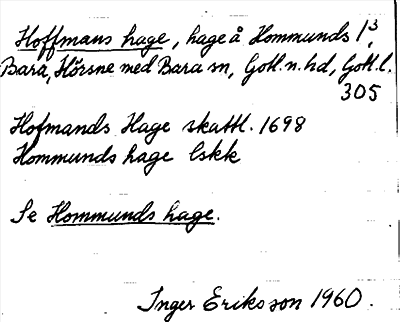 Hoffmans hage, hage å Hommunds 1³,
Bara, Hörsne med Bara sn, Gotl. n. hd, Gotl. l.
305
Hofmands Hage skattl. 1698
Hommunds hage lskk
Se Hommunds hage.
Inger Eriksson 1960.